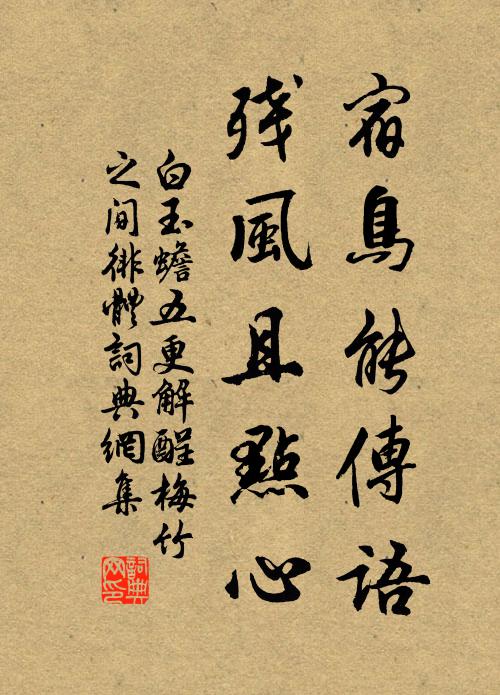 宿鳥能傳語
残風且點心
白玉蟾五更解酲梅竹
之間徘體詞典網集
詞典網印